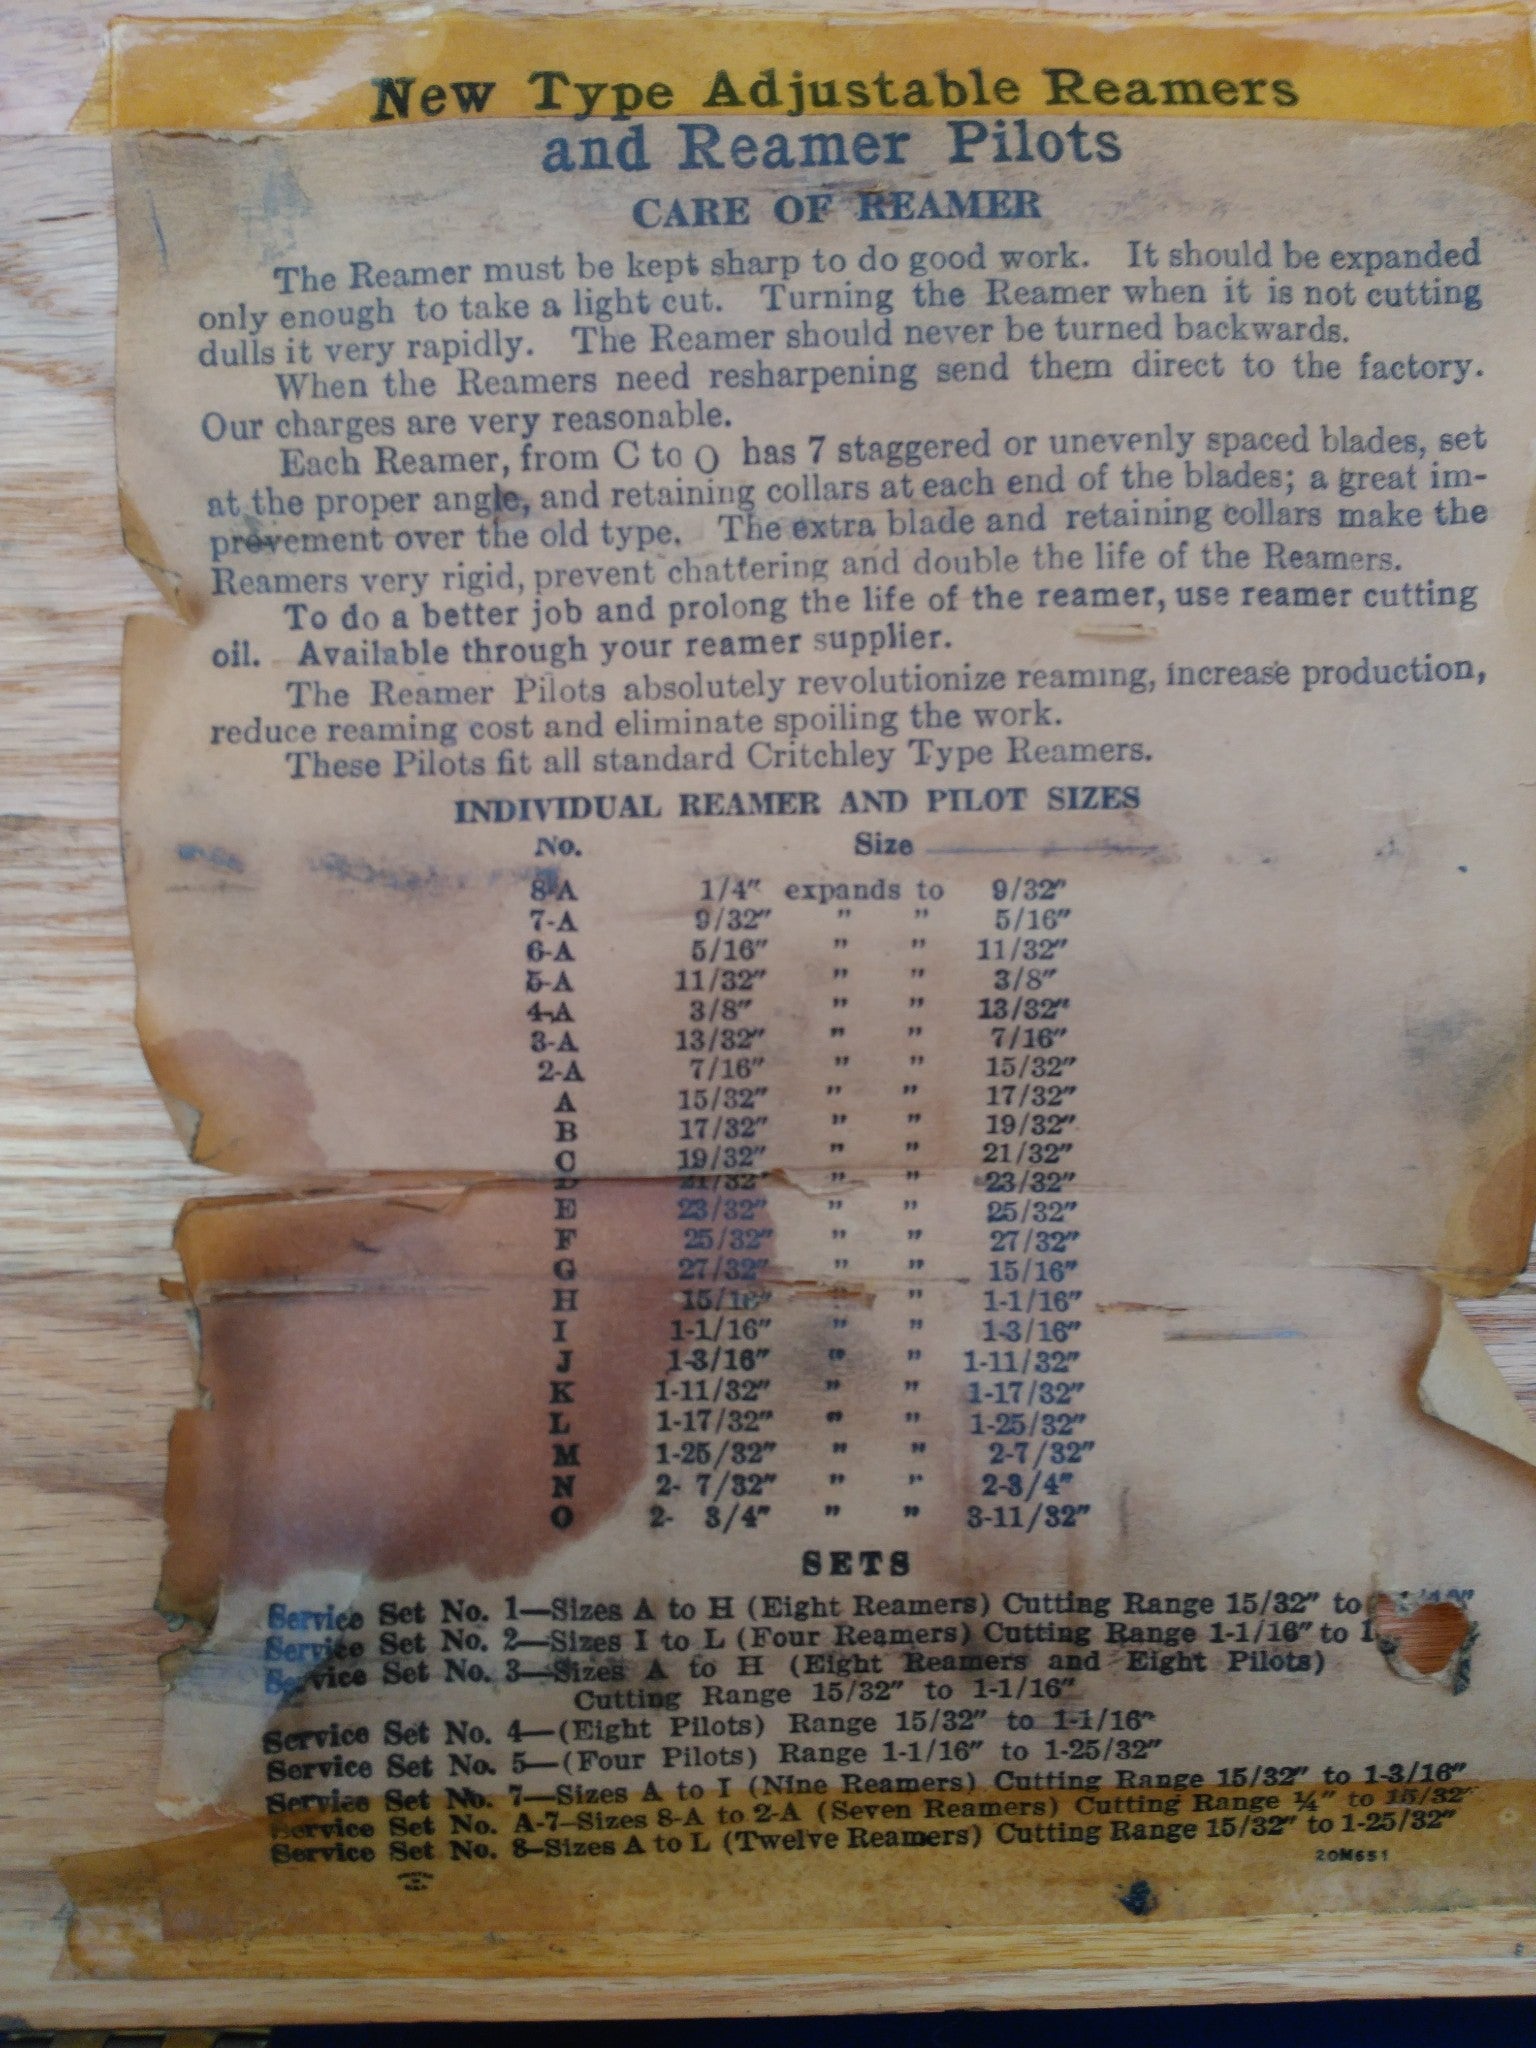 New Type Adjustable Reamers
and Reamer Pilots
CARE OF REAMER
The Reamer must be kept sharp to do good work. It should be expanded
only enough to take a light cut. Turning the Reamer when it is not cutting
dulls it very rapidly. The Reamer should never be turned backwards.
When the Reamers need resharpening send them direct to the factory.
Our charges are very reasonable.
Each Reamer, from C to O has 7 staggered or unevenly spaced blades, set
at the proper angle, and retaining collars at each end of the blades; a great im-
provement over the old type. The extra blade and retaining collars make the
Reamers very rigid, prevent chattering and double the life of the Reamers.
To do a better job and prolong the life of the reamer, use reamer cutting
oil. Available through your reamer supplier.
The Reamer Pilots absolutely revolutionize reaming, increase production,
reduce reaming cost and eliminate spoiling the work.
These Pilots fit all standard Critchley Type Reamers.
INDIVIDUAL REAMER AND PILOT SIZES
No. Size
8-A 1/4" expands to 9/32"
7-A 9/32" " " 5/16"
6-A 5/16" " " 11/32"
5-A 11/32" " " 3/8"
4-A 3/8" " " 13/32"
3-A 13/32" " " 7/16"
2-A 7/16" " " 15/32"
A 15/32" " " 17/32"
B 17/32" " " 19/32"
C 19/32" " " 21/32"
D 21/32" " " 23/32"
E 23/32" " " 25/32"
F 25/32" " " 27/32"
G 27/32" " " 15/16"
H 15/16" " " 1-1/16"
I 1-1/16" " " 1-3/16"
J 1-3/16" " " 1-11/32"
K 1-11/32" " " 1-17/32"
L 1-17/32" " " 1-25/32"
M 1-25/32" " " 2-7/32"
N 2- 7/32" " " 2-3/4"
O 2- 3/4" " " 3-11/32"
SETS
Service Set No. 1—Sizes A to H (Eight Reamers) Cutting Range 15/32" to
Service Set No. 2—Sizes I to L (Four Reamers) Cutting Range 1-1/16" to
Service Set No. 3—Sizes A to H (Eight Reamers and Eight Pilots)
Cutting Range 15/32" to 1-1/16"
Service Set No. 4—(Eight Pilots) Range 15/32" to 1-1/16"
Service Set No. 5—(Four Pilots) Range 1-1/16" to 1-25/32"
Service Set No. 7—Sizes A to I (Nine Reamers) Cutting Range 15/32" to 1-3/16"
Service Set No. A-7—Sizes 8-A to 2-A (Seven Reamers) Cutting Range ¼" to 15/32"
Service Set No. 8—Sizes A to L (Twelve Reamers) Cutting Range 15/32" to 1-25/32"
20M651